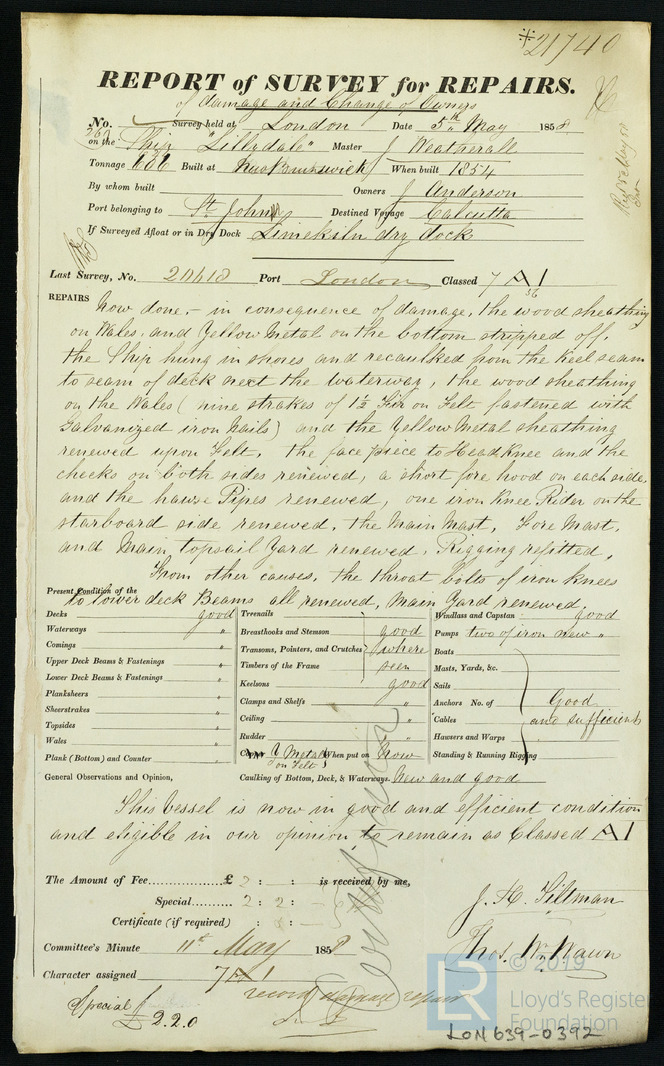 *21740
REPORT of SURVEY for REPAIRS.
of damage and Change of Owners
No. 363 Survey held at London Date 5th May 1858
on the Ship "Lillydale" Master J Weatherall
Tonnage 636 Built at New Brunswick When built 1854
By whom built Owners J Anderson
Port belonging to St John NB Destined Voyage Calcutta
If Surveyed Afloat or in Dry Dock Limekiln dry dock
Last Survey, No. 20618 Port London Classed 7 A1
56
REPAIRS Now done, - in consequence of damage, the wood sheathing
on Wales, and Yellow Metal on the bottom stripped off,
the Ship hung in shores and recaulked from the Keel seam
to seam of deck next the waterway, the wood sheathing
on the Wales (nine strakes of 1½ Fir on Felt fastened with
Galvanized iron Nails) and the Yellow Metal sheathing
renewed upon Felt, the face piece to Head Knee and the
cheeks on both sides renewed, a short fore hood on each side,
and the hawse Pipes renewed, one iron Knee Rider on the
starboard side renewed, the Main Mast, Fore Mast,
and Main topsail Yard renewed, Rigging refitted,
From other causes, the throat bolts of iron Knees
to lower deck Beams all renewed, Main Yard renewed.
Present Condition of the
Decks good
Waterways "
Comings "
Upper Deck Beams & Fastenings "
Lower Deck Beams & Fastenings "
Planksheers "
Sheerstrakes "
Topsides "
Wales "
Plank (Bottom) and Counter "
Treenails
Breasthooks and Stemson good
Transoms, Pointers, and Crutches where
Timbers of the Frame seen
Keelsons good
Clamps and Shelfs "
Ceiling "
Rudder "
Copper Y Metal on Felt When put on Now
Caulking of Bottom, Deck, & Waterways New and good
Windlass and Capstan good
Pumps two of iron new "
Boats
Masts, Yards, &c.
Sails
Anchors No. of Good
Cables and sufficient
Hawsers and Warps
Standing & Running Rigging
General Observations and Opinion,
This Vessel is now in good and efficient condition
and eligible in our opinion to remain as Classed A1
The Amount of Fee £ 2 : : is received by me,
Special 2 : 2 : -
Certificate (if required) : :
J. H. Tiltman
Thos. Wm. Wawn
Committee's Minute 11th May 1858
Character assigned 7 A1
record damage repair
Special f
£2.2.0
© 2019
LR
Lloyd's Register
Foundation
LON 639-0392